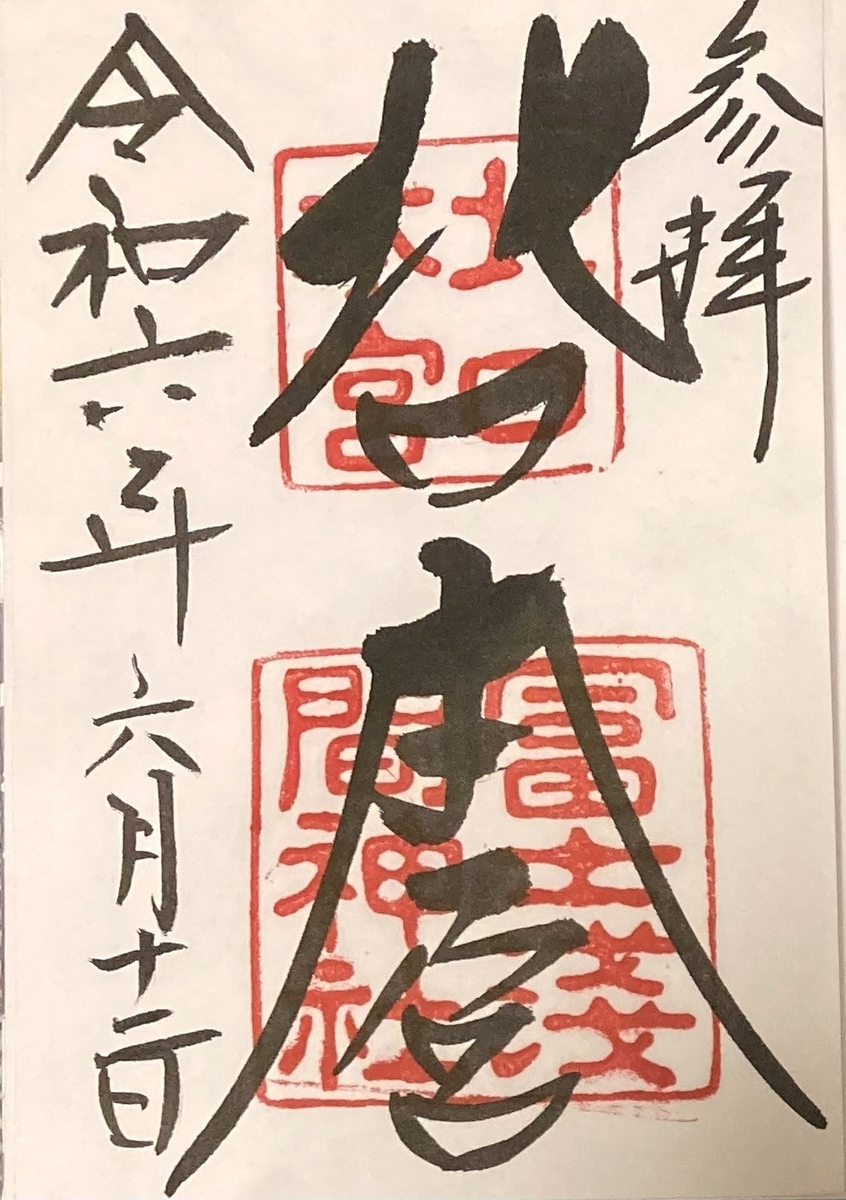 参拝
北口
本宮
北口
本宮
冨士淺
間神社
令和六年六月十二日